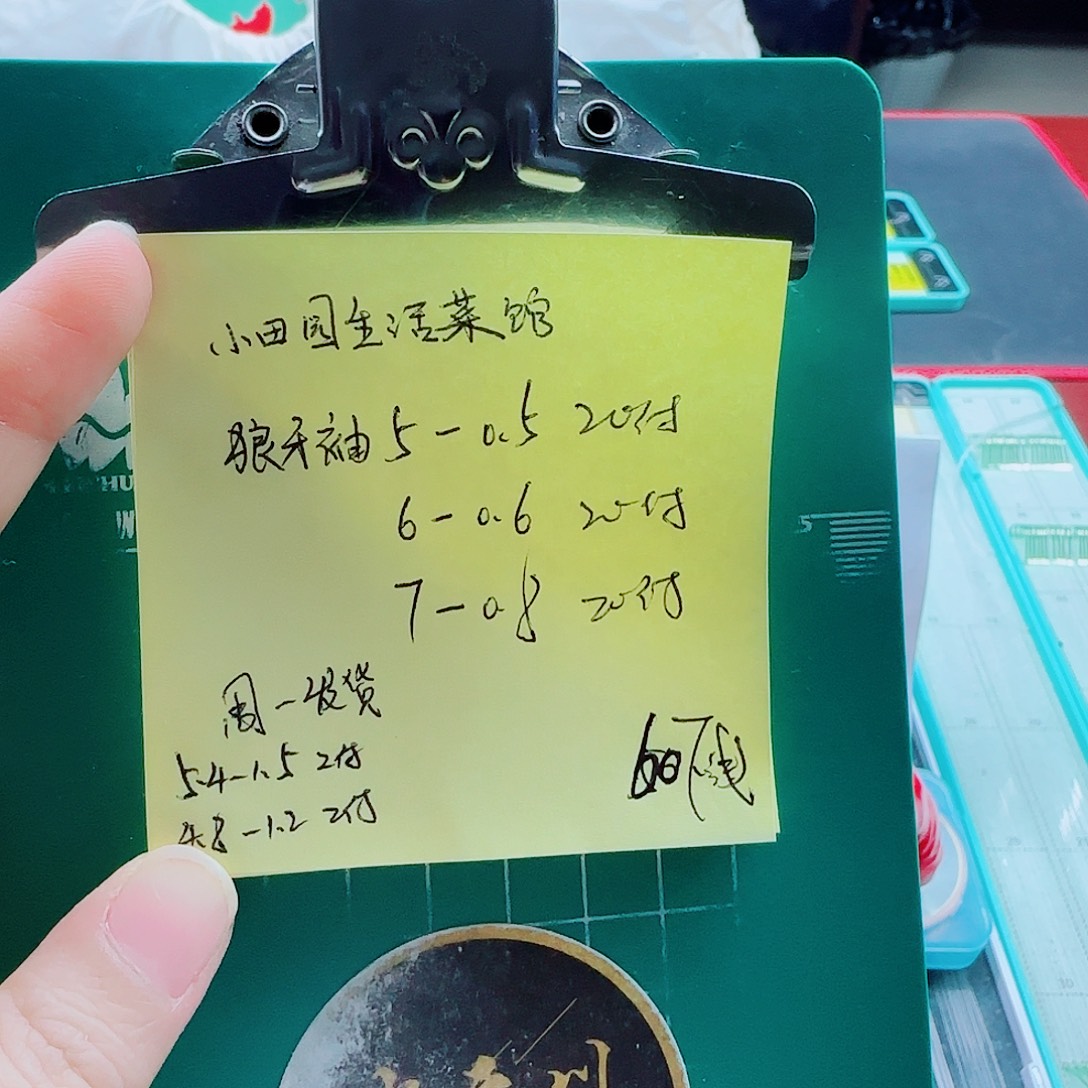 小田园生活菜馆
狼牙袖 5-0.5 20付
6-0.6 20付
7-0.8 20付
周一发货
5.4-1.5 2付
4.8-1.2 2付
HU
W
5